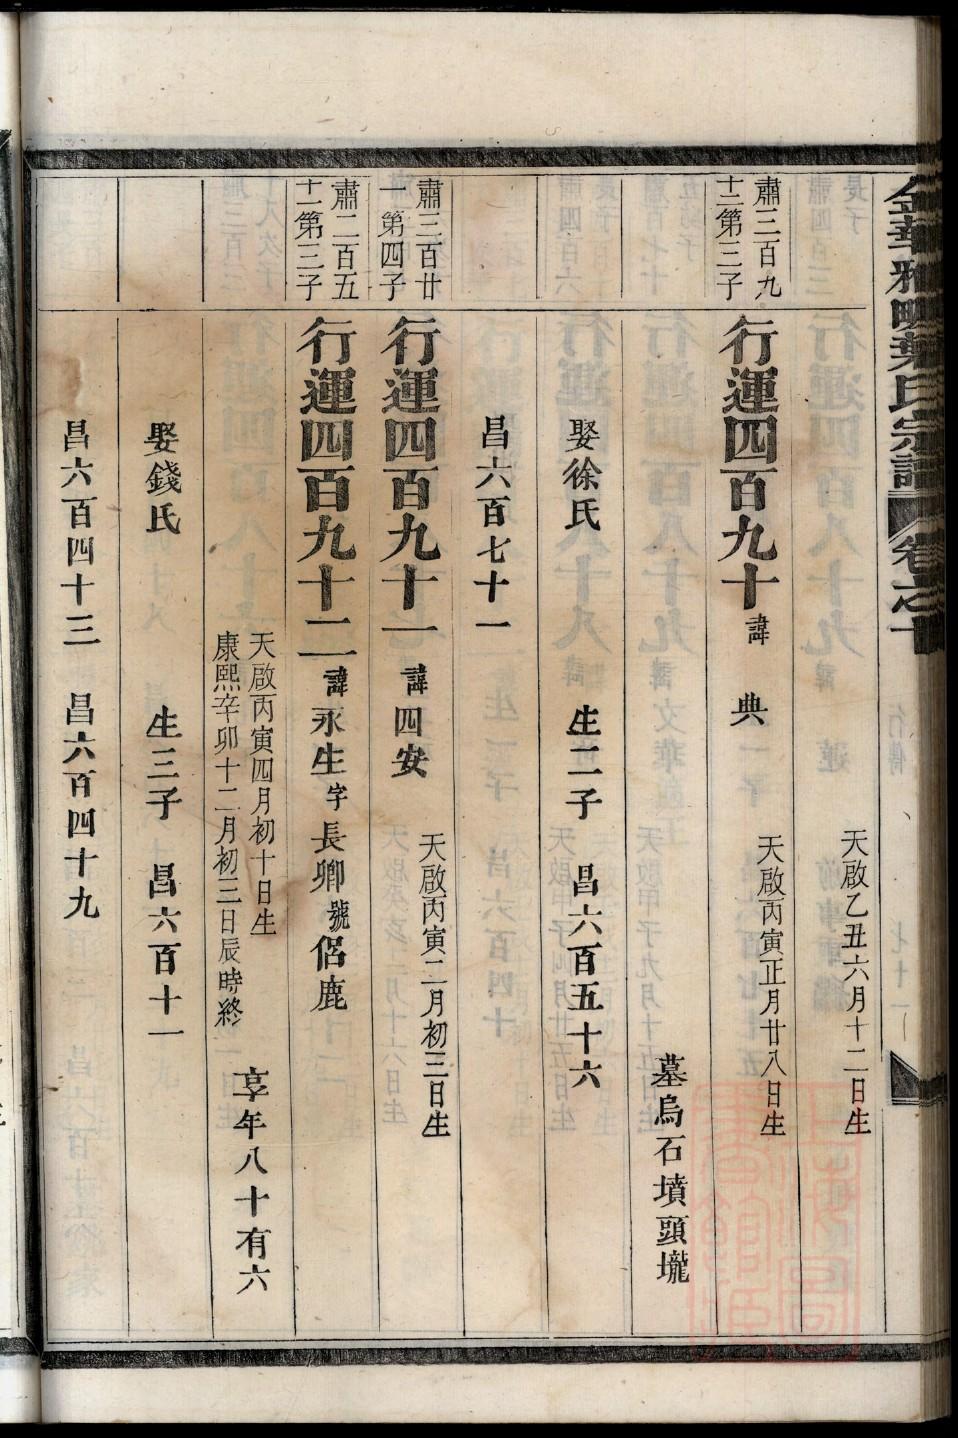 金華雅畈葉氏宗譜 卷之十 行傳 七十一
天啟乙丑六月十二日生
肅三百九
十二第三子
行運四百九十 諱 典
天啟丙寅正月廿八日生
墓烏石墳頭壠
娶徐氏 生二子 昌六百五十六
昌六百七十一
肅三百廿
一第四子
行運四百九十一 諱 四安
天啟丙寅二月初三日生
肅二百五
十二第三子
行運四百九十二 諱 永生 字 長卿 號 侶鹿
天啟丙寅四月初十日生
康熙辛卯十二月初三日辰時終
享年八十有六
娶錢氏 生三子 昌六百十一
昌六百四十三 昌六百四十九